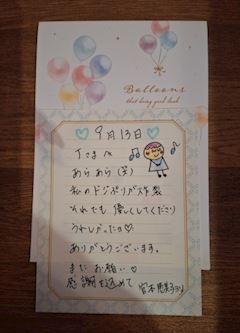 Balloons
that bring good luck
9月13日
Tさまへ
あらあら(笑)
私のドジぶりが炸裂
それでも 優しくしてください
うれしかったの♡
ありがとうございます。
また お願い♡
感謝を込めて
宮本
より